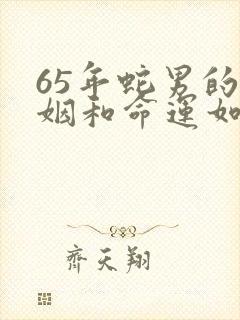 65年蛇男的
姻和命運如
齊天翔